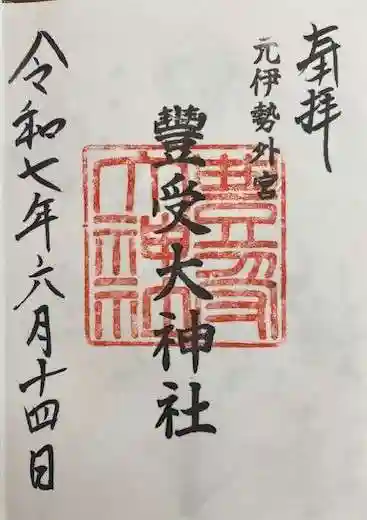 奉拝
元伊勢外宮
豐受大神社
令和七年六月十四日